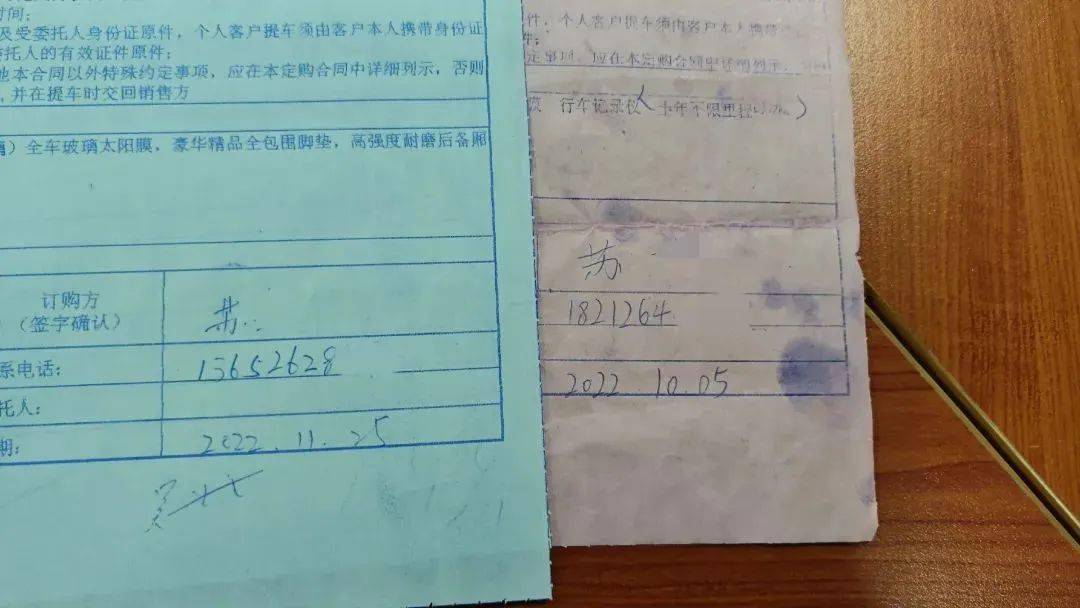 时间;
及受委托人身份证原件,个人客户提车须由客户本人携带身份证
委托人的有效证件原件;
他本合同以外特殊约定事项,应在本定购合同中详细列示,否则
,并在提车时交回销售方
)全车玻璃太阳膜,豪华精品全包围脚垫,高强度耐磨后备厢
订购方
(签字确认)
苏
系电话:
13652628
托人:
期:
2022.11.25
件,个人客户提车须由客户本人携带
件;
定事项,应在本定购合同中详细列示,
膜 行车记录仪(
年不限里程
)
苏
1821264
2022 10.05